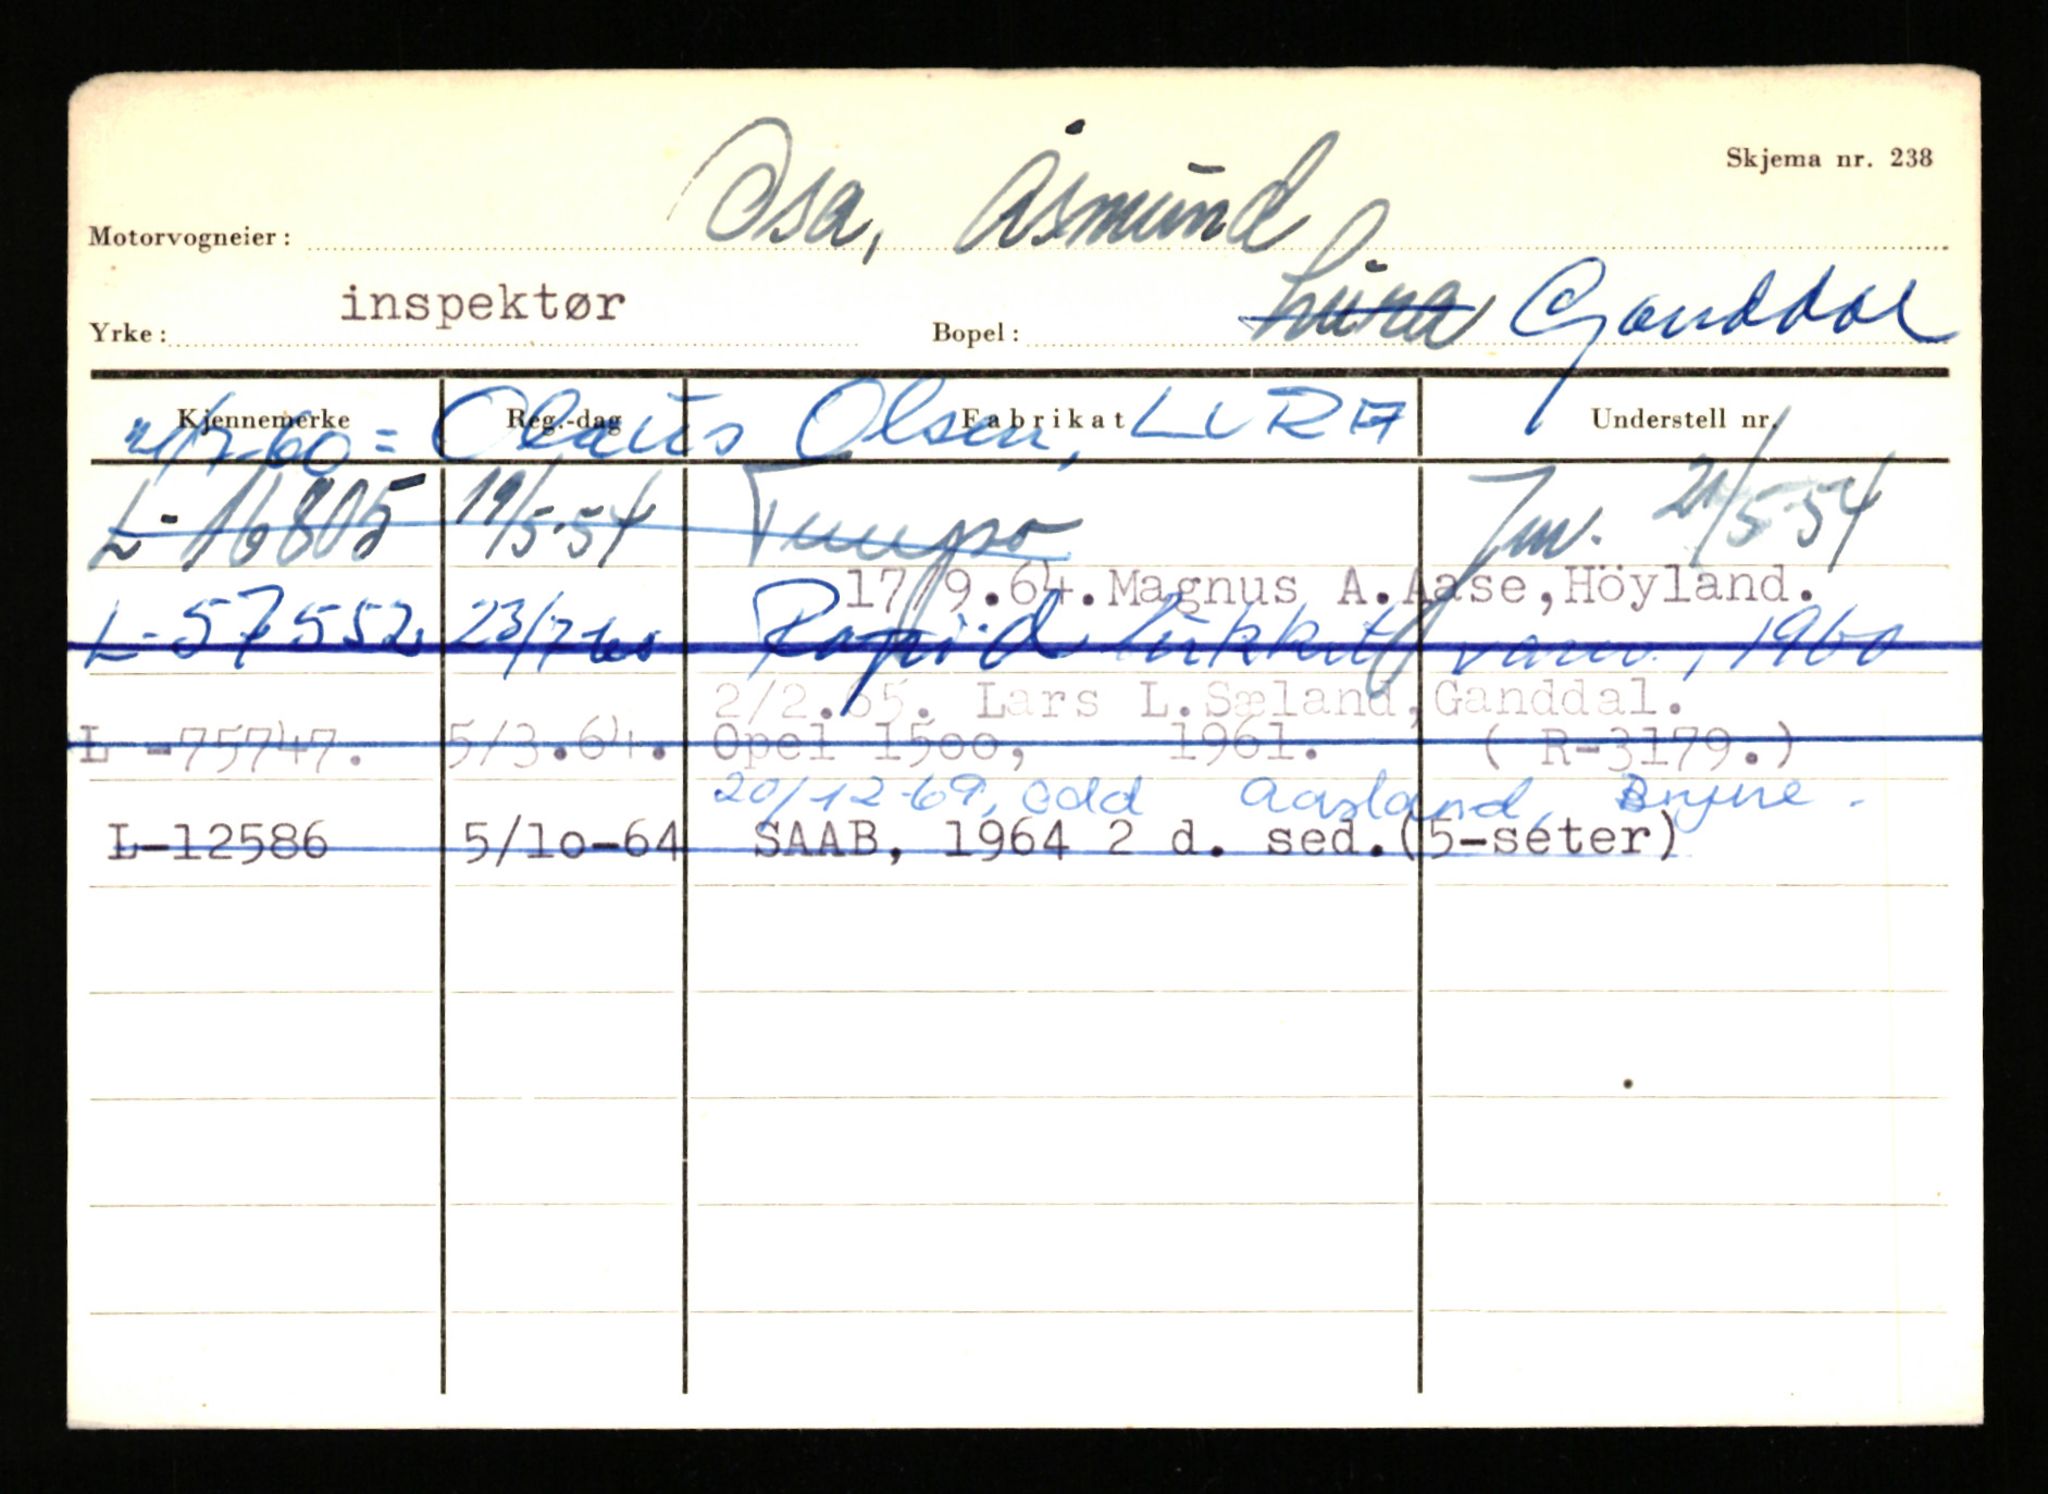 Skjema nr. 238
Motorvogneier: Osa, Åsmund
Yrke: inspektør Bopel: Lura Ganddal
Kjennemerke Reg.-dag Fabrikat Understell nr.
21/7-60 = Olaus Olsen, LURA
L-16805 19/5-54 Tempo Inv. 21/5-54
17/9.64. Magnus A. Aase, Höyland.
L-57552 23/7-60 Rapid lukket varev., 1960
2/2.65. Lars L. Sæland, Ganddal.
L -75747. 5/3.64. Opel 15oo, 1961. ( R-3179.)
20/12-69, Odd Aasland, Bryne.
L-12586 5/1o-64 SAAB, 1964 2 d. sed.(5-seter)